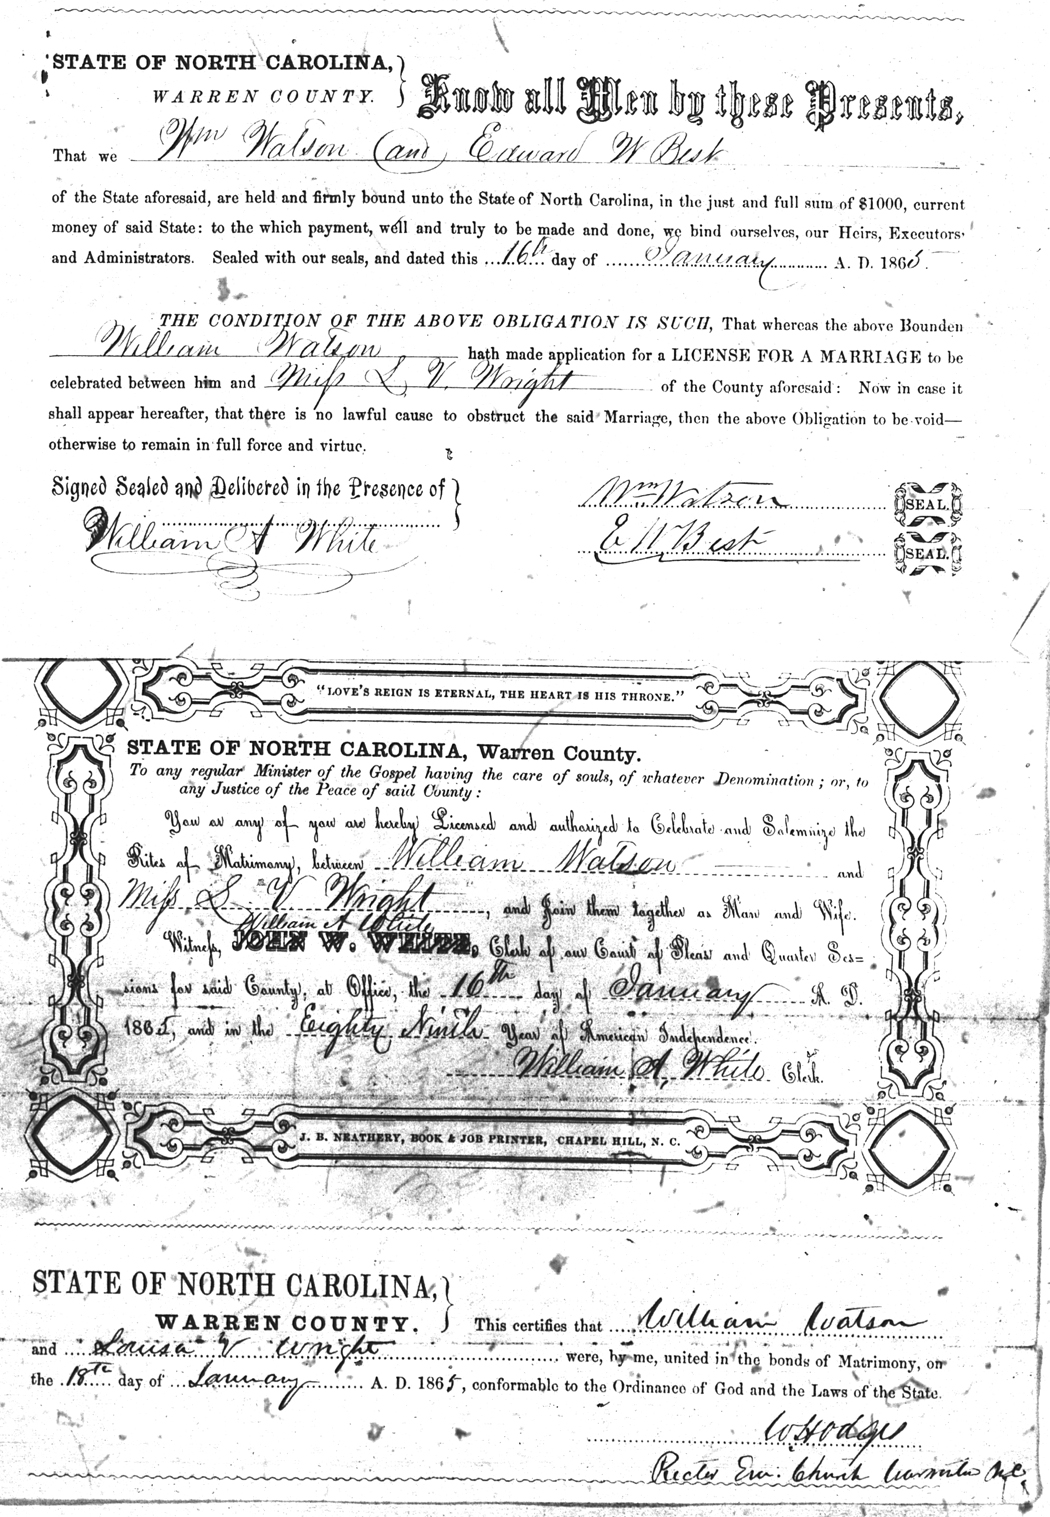 STATE OF NORTH CAROLINA,
WARREN COUNTY.
Know all Men by these Presents,
That we Wm Watson (and) Edward W Best
of the State aforesaid, are held and firmly bound unto the State of North Carolina, in the just and full sum of $1000, current
money of said State: to the which payment, well and truly to be made and done, we bind ourselves, our Heirs, Executors
and Administrators. Sealed with our seals, and dated this 16th day of January A. D. 1865.
THE CONDITION OF THE ABOVE OBLIGATION IS SUCH, That whereas the above Bounden
William Watson hath made application for a LICENSE FOR A MARRIAGE to be
celebrated between him and Miss L V. Wright of the County aforesaid: Now in case it
shall appear hereafter, that there is no lawful cause to obstruct the said Marriage, then the above Obligation to be void—
otherwise to remain in full force and virtue.
Signed Sealed and Delibered in the Presence of
William A White
Wm Watson SEAL.
E W Best SEAL.
"LOVE'S REIGN IS ETERNAL, THE HEART IS HIS THRONE."
STATE OF NORTH CAROLINA, Warren County.
To any regular Minister of the Gospel having the care of souls, of whatever Denomination; or, to
any Justice of the Peace of said County:
You or any of you are hereby Licensed and authorized to Celebrate and Solemnize the
Rites of Matrimony, between William Watson and
Miss L V Wright, and Join them together as Man and Wife.
William A White
Witness, JOHN W. WHITE, Clerk of our Court of Pleas and Quarter Ses=
sions for said County, at Office, the 16th day of January A. D.
1865, and in the Eighty Ninth Year of American Independence.
William A, White Clerk.
J. B. NEATHERY, BOOK & JOB PRINTER, CHAPEL HILL, N. C.
STATE OF NORTH CAROLINA,
WARREN COUNTY.
This certifies that William Watson
and Louisa V Wright were, by me, united in the bonds of Matrimony, on
the 18th day of January A. D. 1865, conformable to the Ordinance of God and the Laws of the State.
W Hodges
Rector Em. Church Warrenton N.C.